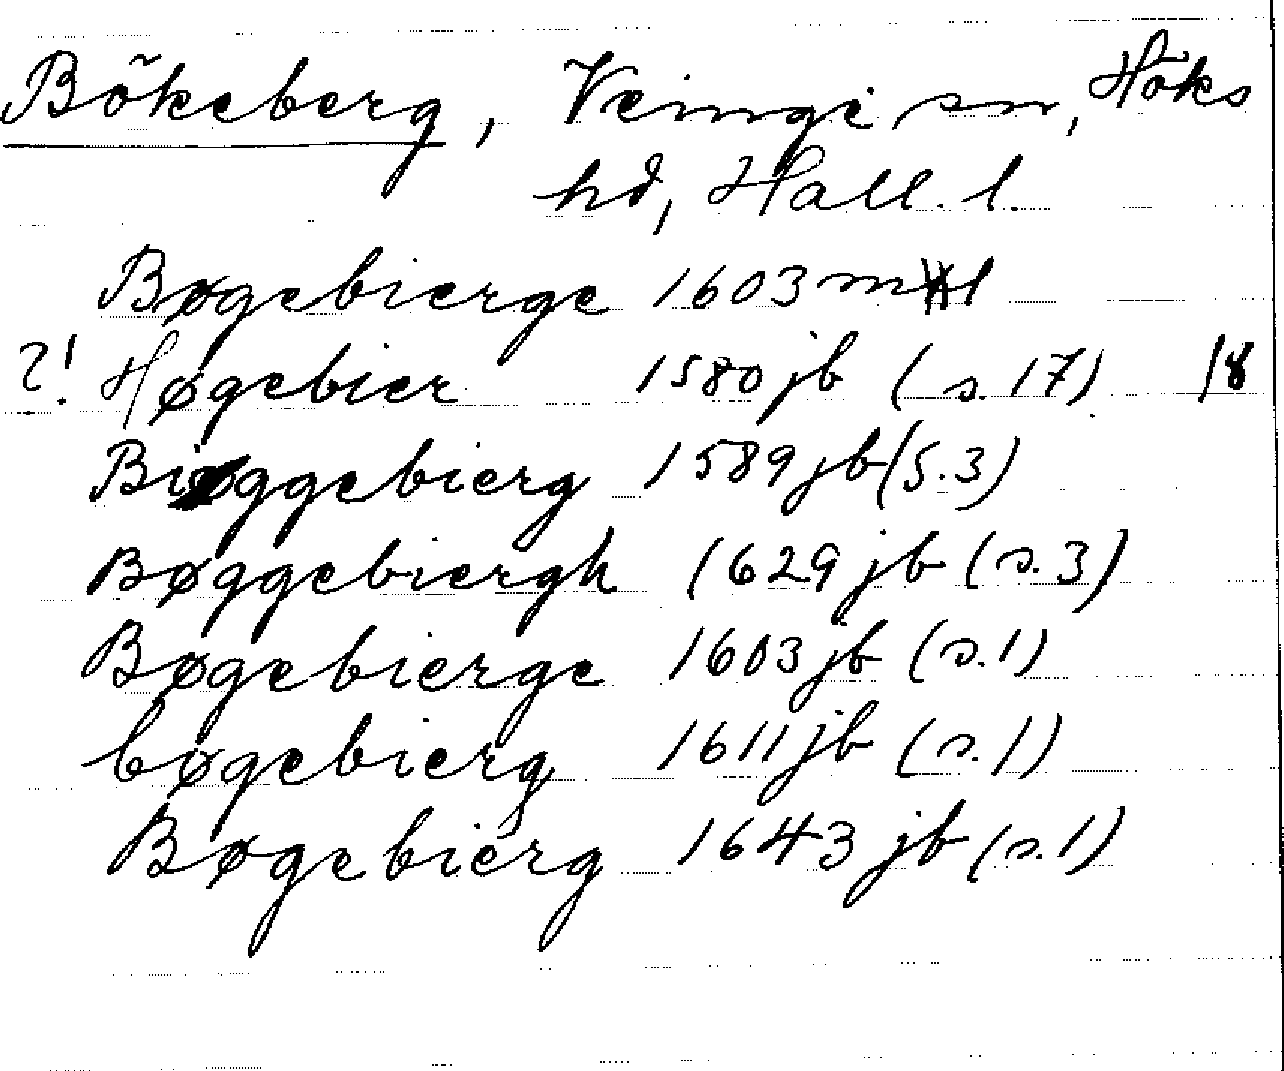 Bökeberg, Veinge sn, Höks
hd, Hall. l.
Bøgebierge 1603 ml
?! Høgebier 1580 jb (s. 17) 18
Bøggebierg 1589 jb (s. 3)
Bøggebiergh 1629 jb (s. 3)
Bøgebierge 1603 jb (s. 1)
bøgebierg 1611 jb (s. 1)
Bøgebierg 1643 jb (s. 1)